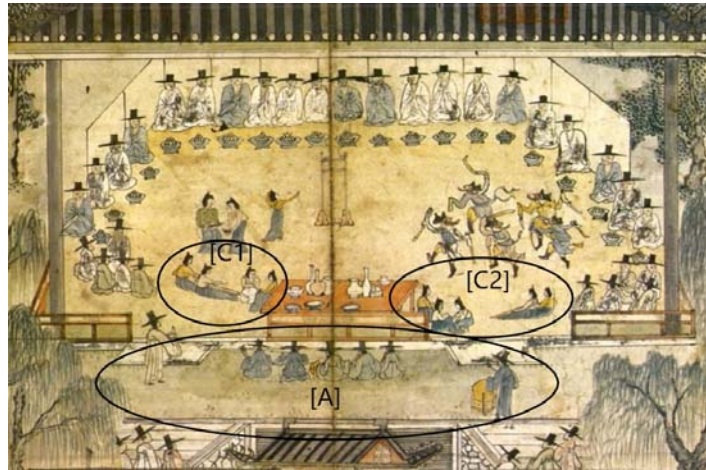 [C1]
[C2]
[A]